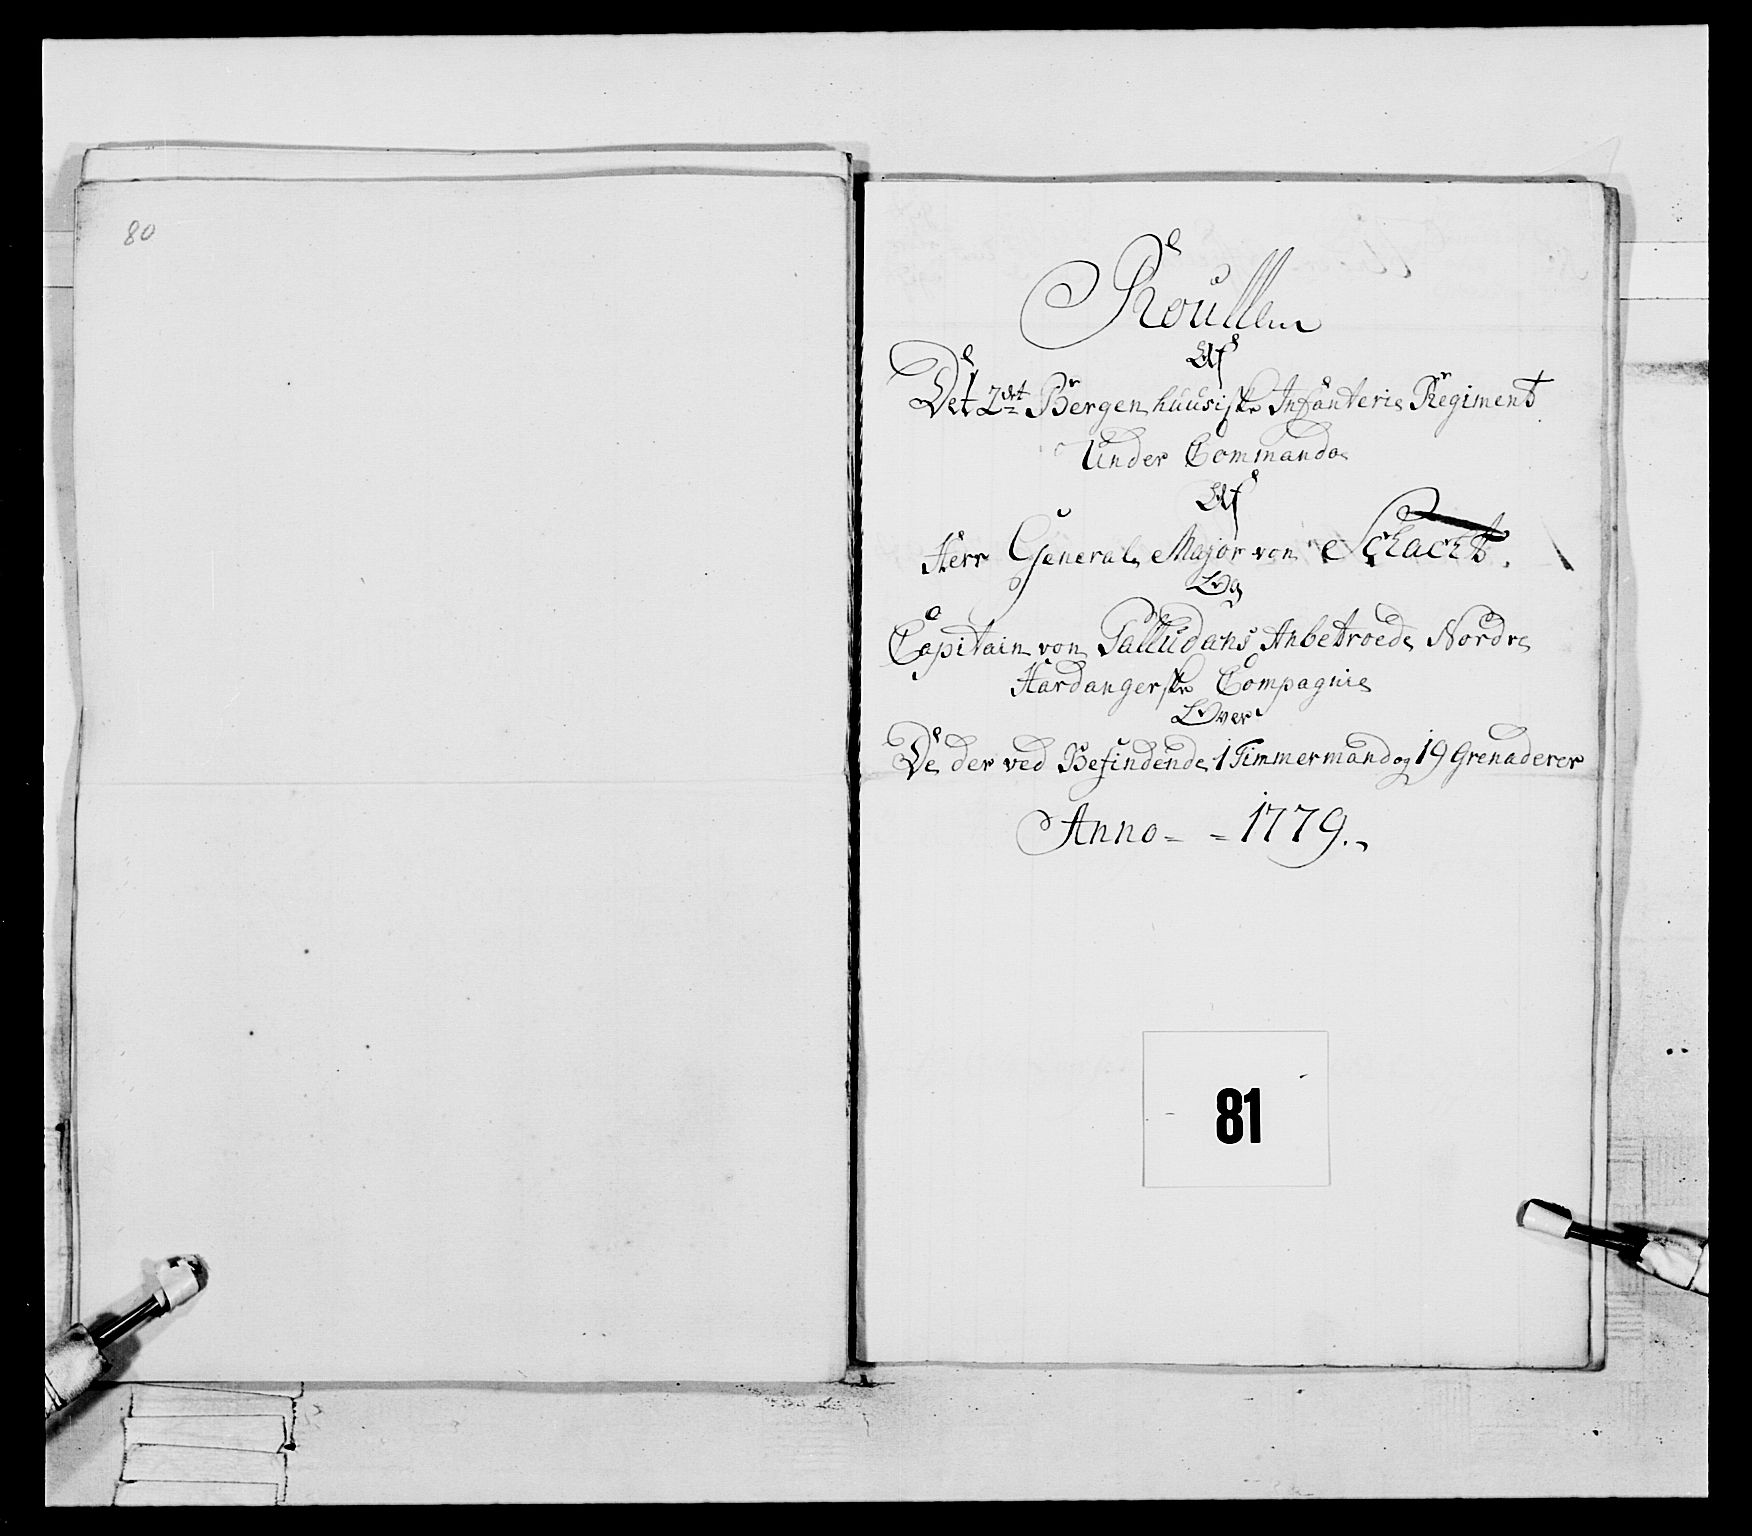 80
Roullen
Af
Det 2det Bergenhuusiske Infanterie Regiment
Under Commando
Af
Herr General Major von Schacht.
Og
Capitain von Palludans Anbetroede Nordre
Hardangerske Compagnie
Over
De der ved Befindende 1 Timmermand og 19 Grenaderer
Anno = = 1779.
81